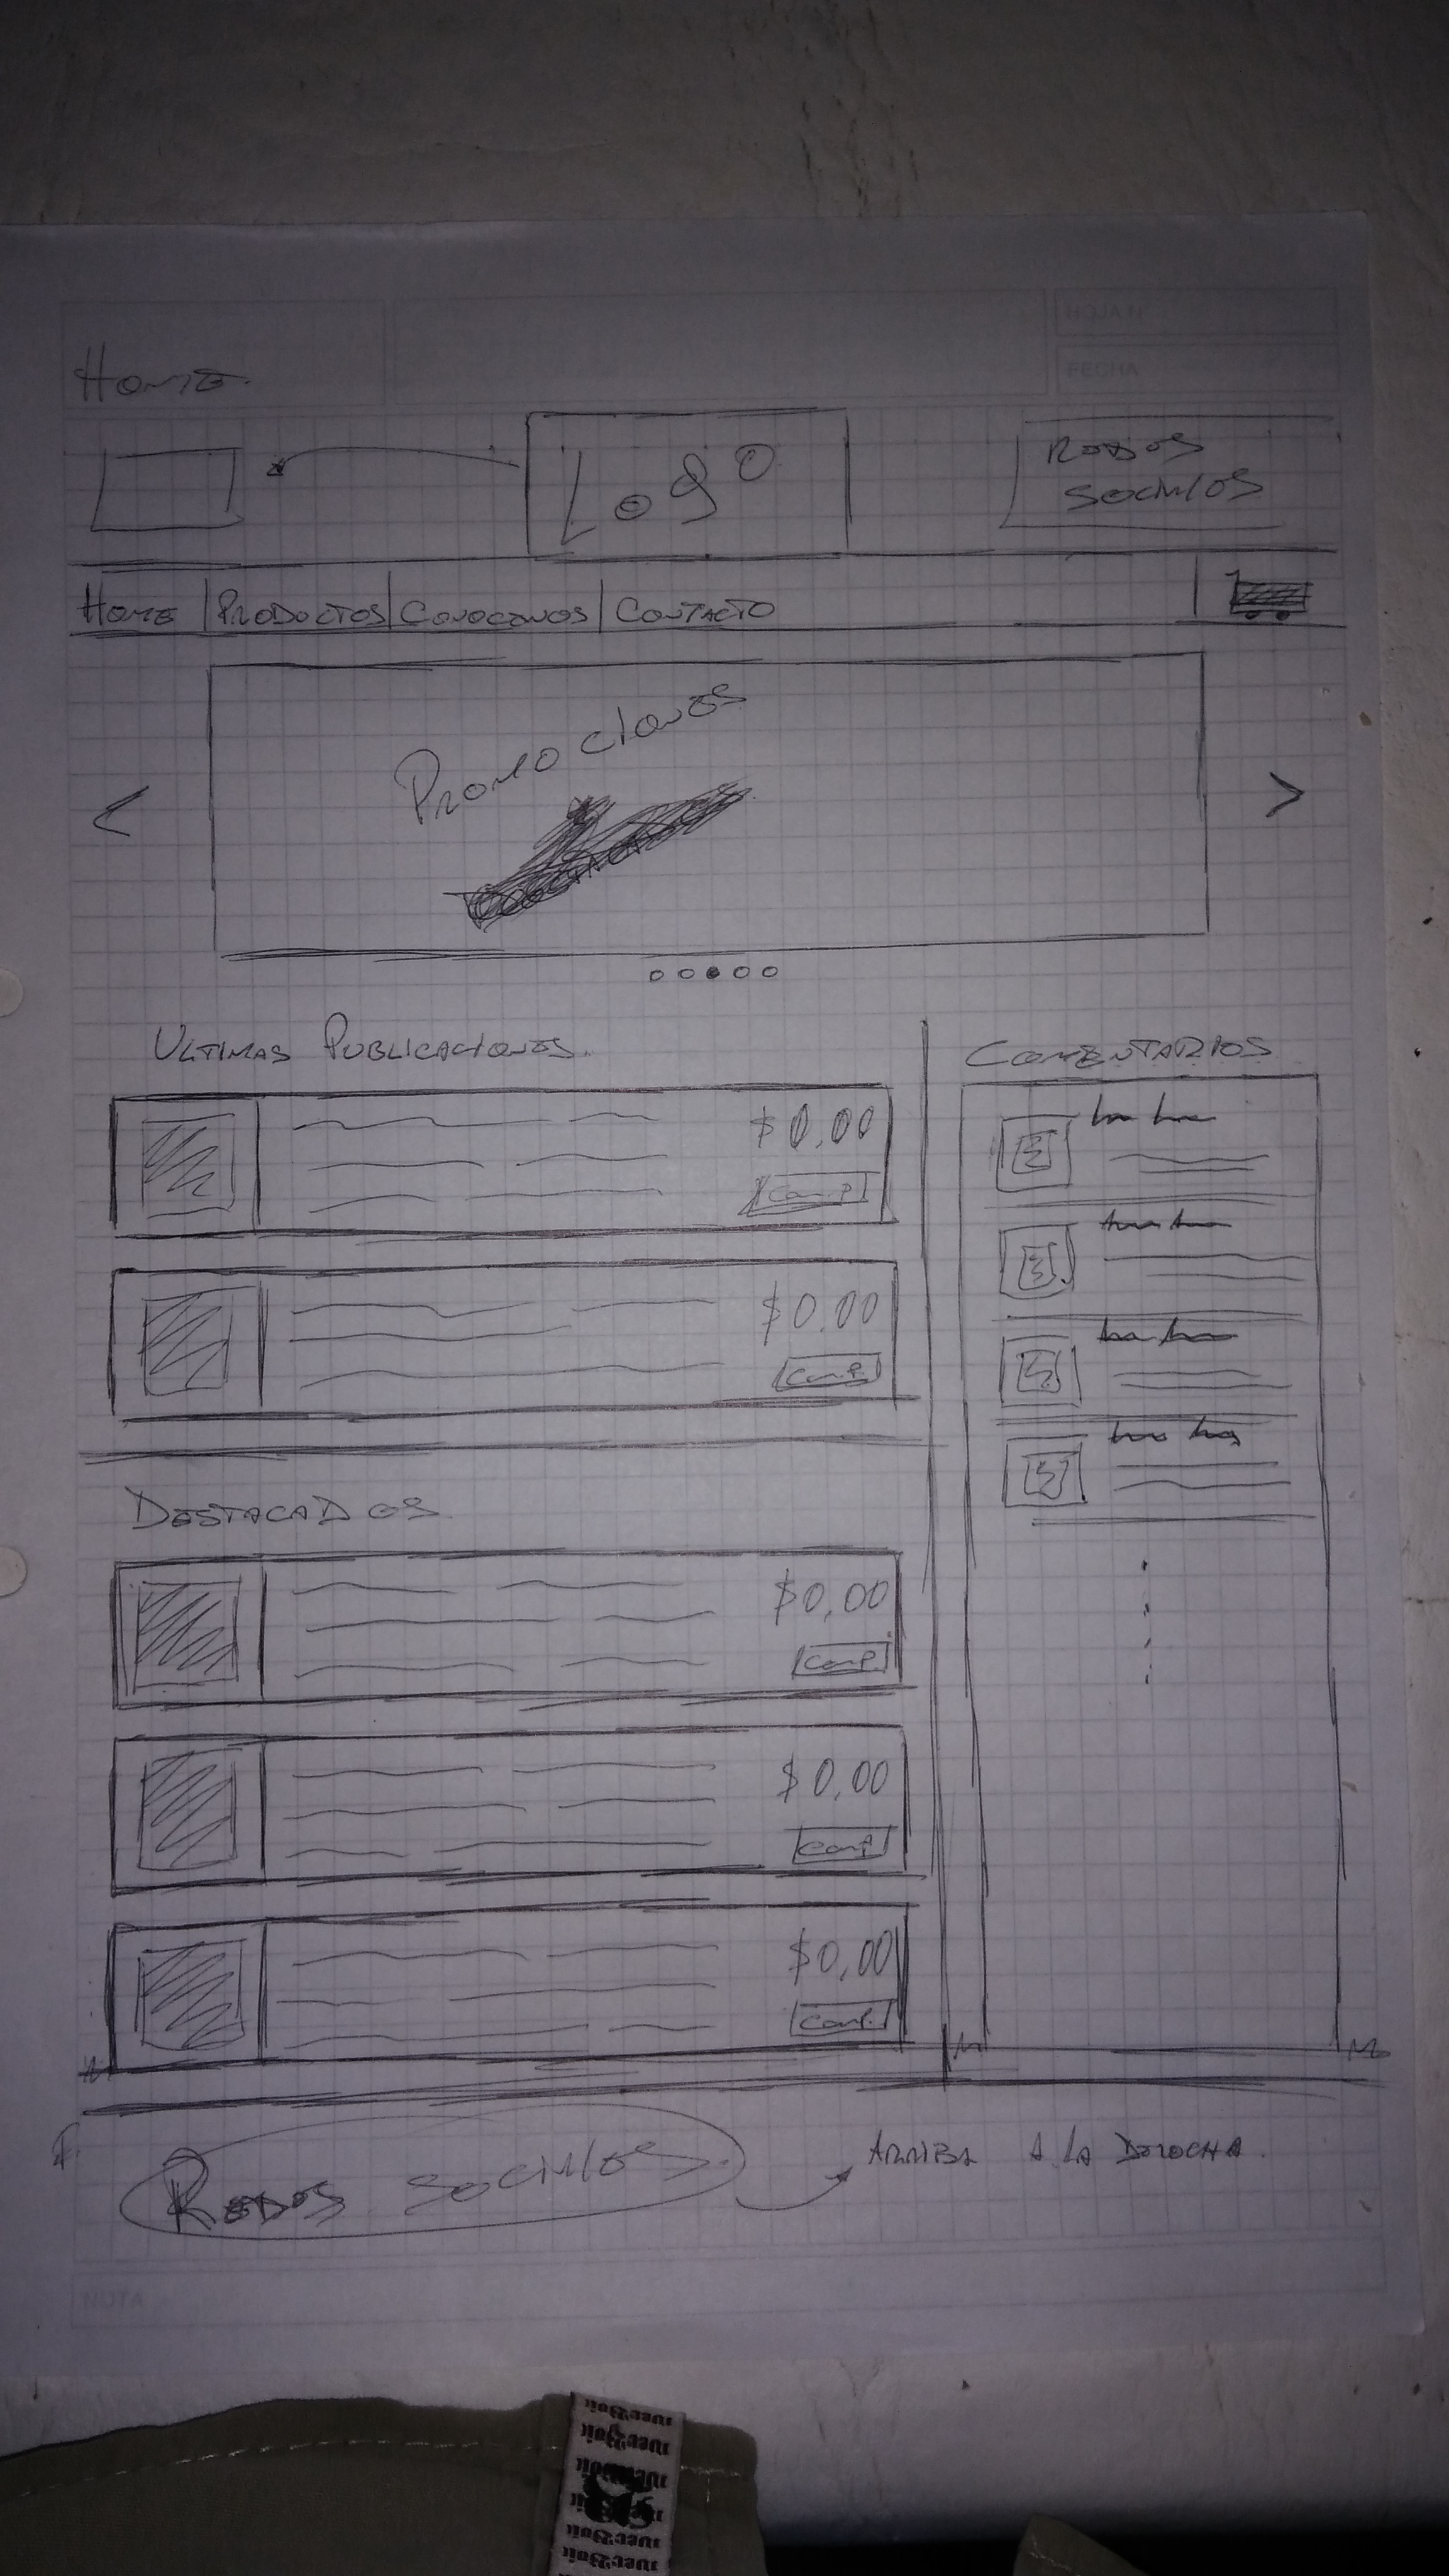 HOJA N°
FECHA
HOME
LOGO
REDES
SOCIALES
HOME PRODUCTOS CONOCENOS CONTACTO
PROMOCIONES
<
>
ULTIMAS PUBLICACIONES.
COMENTARIOS
$0,00
COMP.
$0.00
COMP.
DESTACADOS
$0,00
COMP.
$0,00
COMP
$0,00
COMP.
REDES SOCIALES.
ARRIBA A LA DERECHA.
NOTA